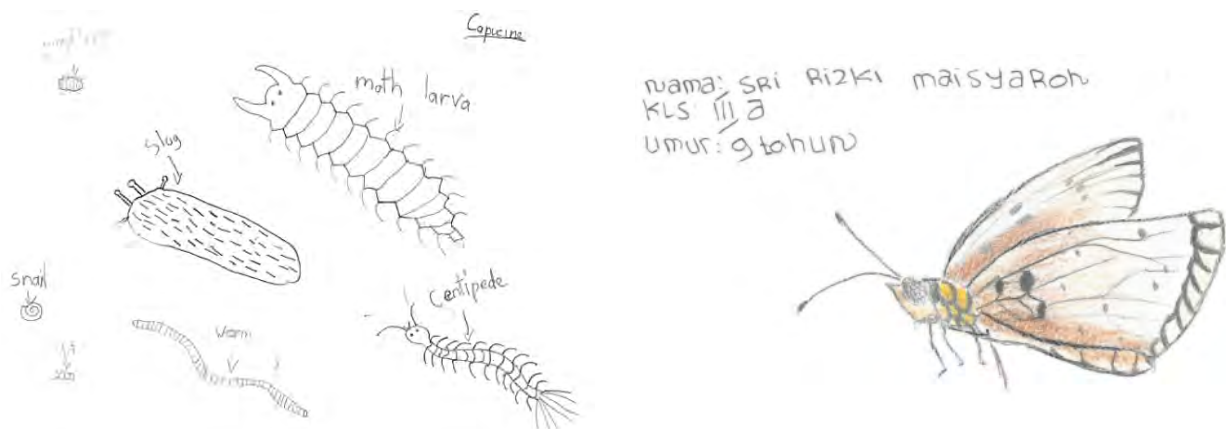 Capucine
moth larva
slug
snail
worm
centipede
nama: SRI RiZKI maisyaroh
KLS III a
umur: 9 tahun